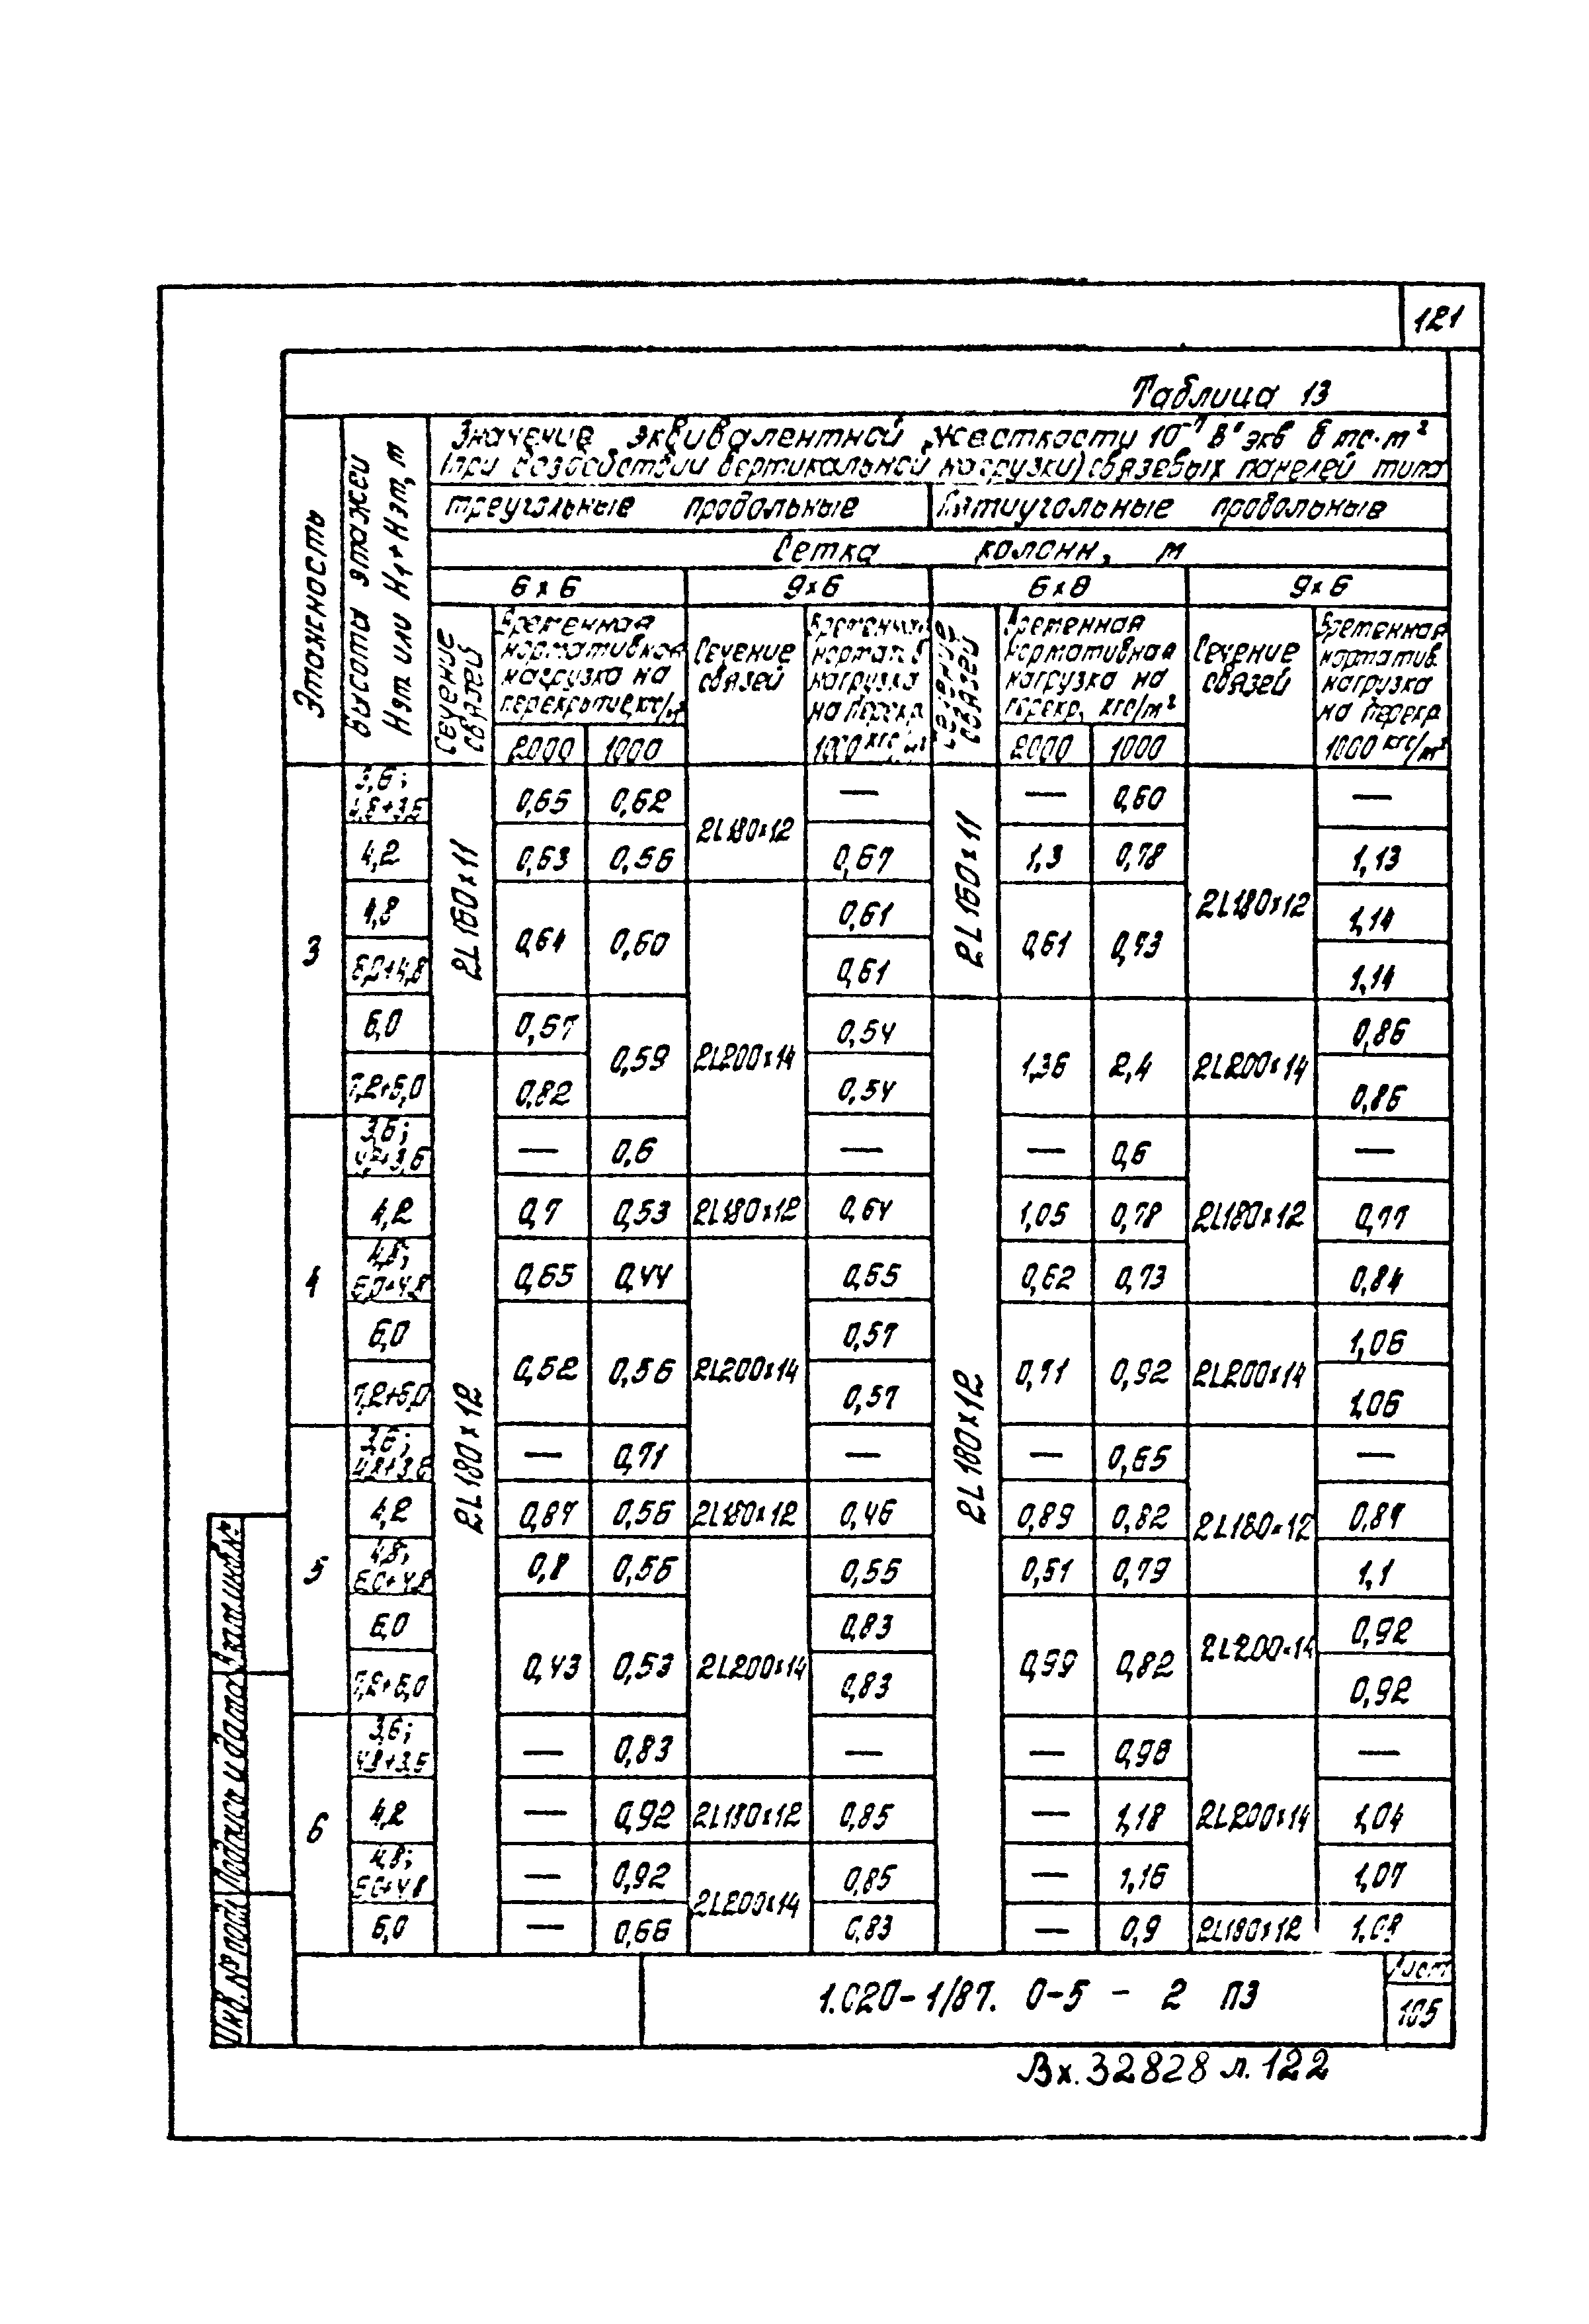 121
Таблица 13
Этажность
Высоты этажей
Нэт или Н1+Нэт, м
Значение эквивалентной жесткости 10⁻⁷ В'экв в тс·м²
(при воздействии вертикальной нагрузки) связевых панелей типа
треугольные продольные
Пятиугольные продольные
Сетка колонн, м
6×6 9×6 6×6 9×6
Сечение связей
Временная нормативная нагрузка на перекрытие, кгс/м²
2000 1000
Сечение связей
Временная норматив. нагрузка на перекр. 1000 кгс/м²
Сечение связей
Временная нормативная нагрузка на перекр. кгс/м²
2000 1000
Сечение связей
Временная норматив. нагрузка на перекр. 1000 кгс/м²
2L160×11 2L160×11
2L180×12 2L180×12
3
3,6; 4,8+3,6 0,65 0,62 2L180×12 — — 0,60 2L180×12 —
4,2 0,63 0,56 0,67 1,3 0,78 1,13
4,8 0,64 0,60 2L200×14 0,61 0,61 0,73 1,14
6,0+4,8 0,61 1,14
6,0 0,57 0,59 0,54 1,36 2,4 2L200×14 0,86
7,2+6,0 0,82 0,54 0,86
4
3,6; 4,8+3,6 — 0,6 — — 0,6 2L180×12 —
4,2 0,7 0,53 2L180×12 0,64 1,05 0,78 0,77
4,8; 6,0+4,8 0,65 0,44 2L200×14 0,55 0,62 0,73 0,84
6,0 0,52 0,56 0,57 0,71 0,92 2L200×14 1,06
7,2+6,0 0,57 1,06
5
3,6; 4,8+3,6 — 0,71 — — 0,65 2L180×12 —
4,2 0,87 0,56 2L180×12 0,46 0,89 0,82 0,87
4,8; 6,0+4,8 0,8 0,56 2L200×14 0,55 0,51 0,79 1,1
6,0 0,43 0,53 0,83 0,99 0,82 2L200×14 0,92
7,2+6,0 0,83 0,92
6
3,6; 4,8+3,6 — 0,83 — — 0,96 2L200×14 —
4,2 — 0,92 2L180×12 0,85 — 1,18 1,04
4,8; 6,0+4,8 — 0,92 2L200×14 0,85 — 1,16 1,07
6,0 — 0,66 0,83 — 0,9 2L180×12 1,08
Инв. № подл. Подпись и дата Взам. инв. №
1.020-1/87. 0-5 - 2 ПЗ
Лист
105
Вх. 32828 л. 122